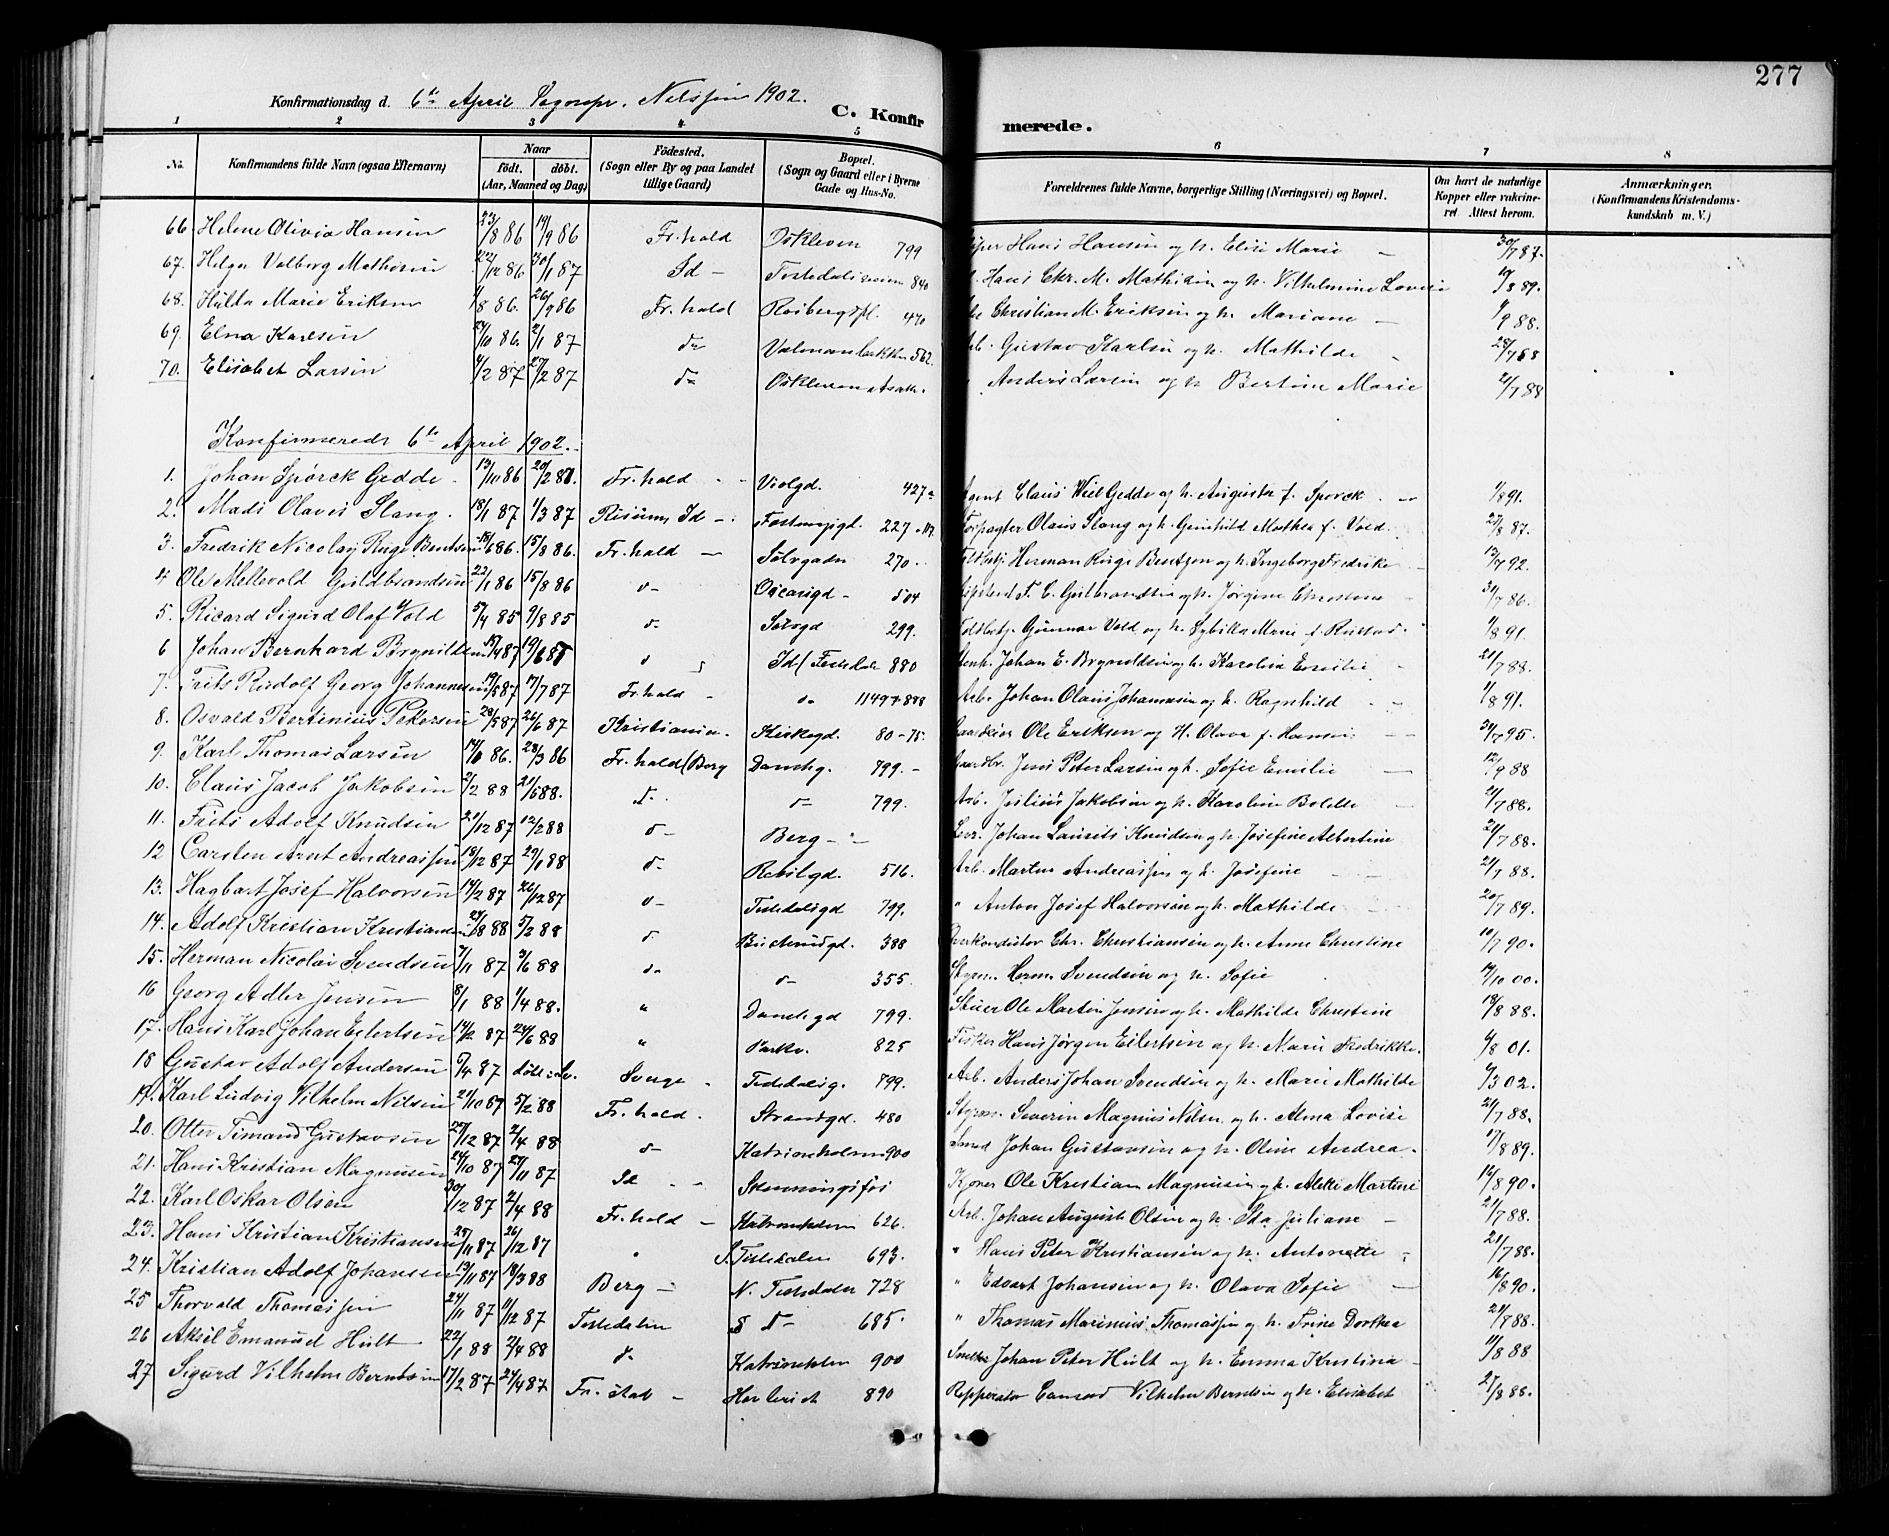 277
Konfirmationsdag d. 6te April 1902.
C. Konfirmerede.
1 2 3 4 5 6 7 8
No. Konfirmandens fulde Navn (ogsaa Efternavn) Naar födt. döbt. (Aar, Maaned og Dag) Födested. (Sogn eller By og paa Landet tillige Gaard) Bopæl. (Sogn og Gaard eller i Byerne Gade og Hus-No. Forældrenes fulde Navne, borgerlige Stilling (Næringsvei) og Bopæl. Om havt de naturlige Kopper eller vakcineret. Attest herom. Anmærkninger. (Konfirmandens Kristendomskundskab m. V.)
66. Helene Olivia Hansen 23/8 86 19/9 86 Fr.hald Oskleven 799 Hans Hansen og h. Elise Marie 30/7 87.
67. Helga Valborg Mathisen 22/12 86 30/1 87 Id - 840 Hans Chr. M. Mathisen og h. Vilhelmine Lovise 10/8 89.
68. Hilda Marie Eriksen 1/8 86. 26/9 86 Fr.hald Röibergspl. 470 Christian M. Eriksen og h. Mariane 1/9 88.
69. Elna Karlsen 29/10 86. 2/1 87 do 562. Gustav Karlsen og h. Mathilde
70. Elisabet Larsen 4/2 87 27/2 87 do Oskleven Anders Larsen og h. Bertine Marie 21/7 88
Konfirmerede 6te April 1902.
1. Johan Spörck Gedde 13/11 86 Fr.hald Violgd. 427a Agent Claus Wiel Gedde og h. Augusta f. Sporck 1/8 91.
2. Mads Olaves Stang. 18/1 87 1/3 87 Risums Id 227 Forpagter Olaus Stang og h. Gunhild Mathea f. Vold 27/8 87.
3. Fredrik Nicolay Ruge Bentsen 15/8 86. Fr.hald Sölvgaden 270 Toldbetj. Herman Ruge Bentzen og h. Ingeborg Fredrike 13/7 92
4 Ole Mellevold Guldbrandsen 22/1 86 15/8 86 do Oscarsgd 504 og h. Jörgine Christine 31/7 86.
5. Ricard Sigurd Olaf Vold 5/4 85 9/8 85 do Sölvgd 299. Toldbetj. Gunnar Vold og h. Sybilla Marie f. Rustad 1/8 91.
6 Johan Bernhard Brynildsen do Id (Tistedalen 880 Johan E. Brynildsen og h. Karoline Emilie 21/7 88.
7. Frits Rudolf Georg Johannesen 17/7 87 Fr.hald do Arb. Johan Olaus Johannesen og h. Ragnhild 1/8 91.
8. Osvald Bertinius Petersen 28/5 87 26/6 87 Kristiania Kirkegd. 80-75. Ole Eriksen og H. Olava f. Hansen 31/7 95.
9. Karl Thomas Larsen 28/3 86 Fr.hald (Berg Damhg. 799. Jens Peter Larsen og h. Sofie Emilie 12/9 88
10. Claus Jacob Jakobsen 2/2 88 21/5 88. do do 799. Arb. Julius Jakobsen og h. Karoline Bolette 21/7 88.
11. Frits Adolf Knudsen 21/12 87 12/2 88 do Berg Johan Laurits Knudsen og h. Josefine Albertine 21/7 88.
12 Carsten Arnt Andreassen 18/12 87 29/1 88 do Rebslgd. 516. Arb. Martin Andreassen og h. Josefine 21/7 88.
13. Hagbart Josef Halvorsen 14/2 87 26/12 87 do Tistedalsgd 799. " Anton Josef Halvorsen og h. Mathilde 20/7 89.
14. Adolf Kristian Kristiansen 5/2 88 do Busterudgd. 388 Chr. Christiansen og h. Anne Christine 10/7 90.
15. Herman Nicolai Svendsen 7/11 87 3/6 88 do do 355. Styrm. Herm. Svendsen og h. Sofie 14/10 00.
16 Georg Adler Jensen 8/1 88 1/4 88. " Damhgd 799. Ole Martin Jensen og h. Mathilde Christine 18/8 88.
17. Hans Karl Johan Eilertsen 14/12 87 24/6 88 " Parkv. 825 Fisker Hans Jörgen Eilertsen og h. Marie Fredrikke. 6/8 01.
18 Gustav Adolf Andersen 5/4 87 Tistedalsg. 899. Arb. Anders Johan Svendsen og h. Marie Mathilde 4/3 02.
19. Karl Ludvig Vilhelm Nilsen 21/10 87 5/2 88 Fr.hald. Strandgd. 480 Styrm. Severin Magnus Nilsen og h. Alma Lovise 21/7 88.
20. Otter Timand Gustavsen 27/12 87 2/4 88 do Katrineholm 900 Smed Johan Gustavsen og h. Oline Andrea 17/8 89.
21. Hans Kristian Magnusen 24/10 87 27/11 87 Id Skonningsfos Kjörer Ole Kristian Magnusen og h. Alette Martine 16/8 90.
22. Karl Oskar Olsen 30/12 87 2/4 88 Fr.hald Katrineholm 626. Arb. Johan August Olsen og h. Ida Juliane 21/7 88.
23. Hans Kristian Kristiansen 25/11 87 26/12 87 " S. Tistedalen 693. " Hans Peter Kristiansen og h. Antonette 21/7 88.
24. Kristian Adolf Johansen 13/11 87 18/3 88 Berg N. Tistedalen 728 " Edvart Johansen og h. Olava Sofie 16/8 90.
25 Thorvald Thomassen 24/11 87 11/12 87 Tistedalen S do 685. " Thomas Marinius Thomassen og h. Trine Dorthea 21/8 88.
26 Aksel Emanuel Hult 22/1 88 2/4 88 do Katrineholm 900 Johan Peter Hult og h. Emma Kristina 11/8 88
27 Sigurd Vilhelm Berntsen 17/2 87 24/4 87 Fr.stad 890 Repperatör Conrad Vilhelm Berntsen og h. Elisabet 27/8 88.